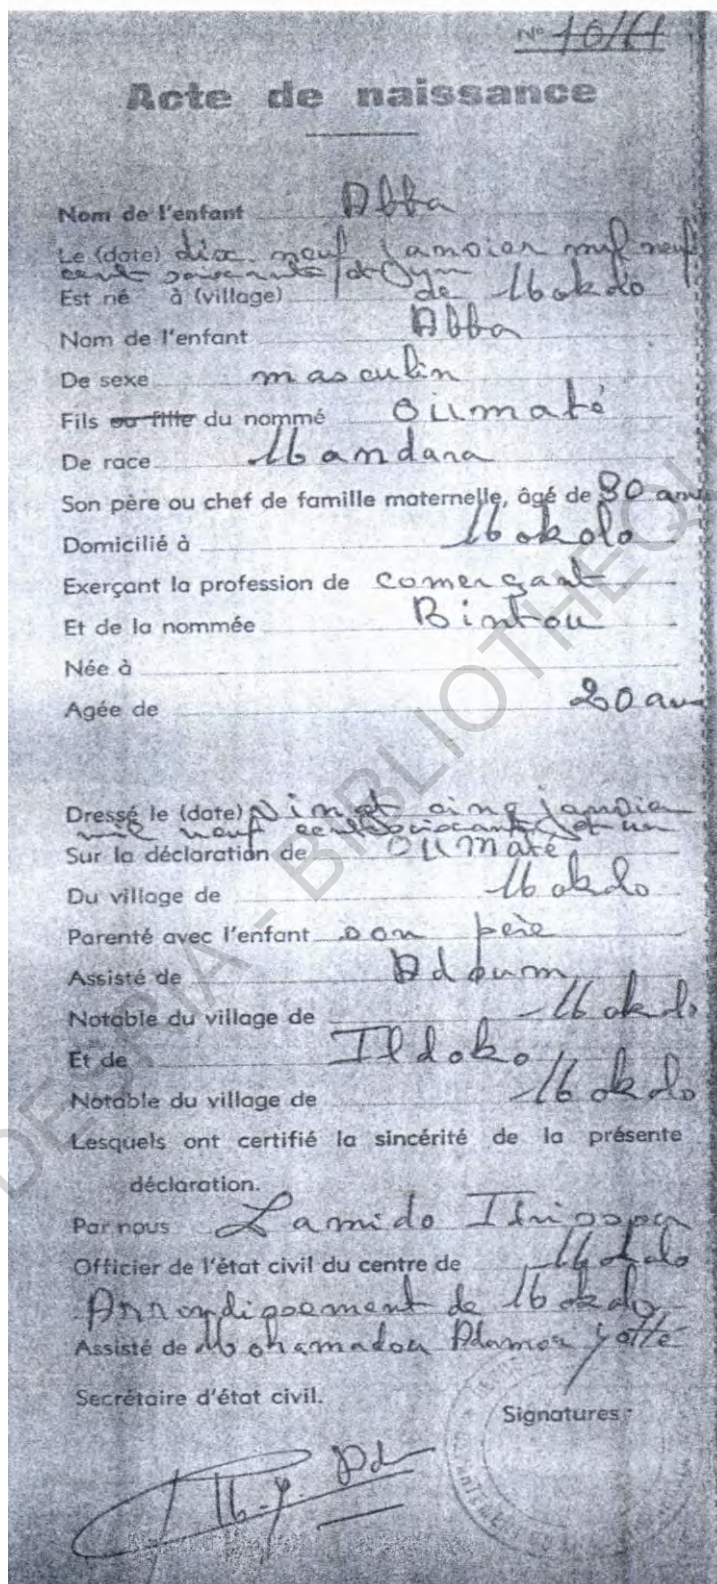 N° 10/61
Acte de naissance
Nom de l'enfant Abba
Le (date) dix neuf janvier mil neuf
cent soixante et un
Est né à (village) de Mokolo
Nom de l'enfant Abba
De sexe masculin
Fils ou fille du nommé Oumaté
De race Mandara
Son père ou chef de famille maternelle, âgé de 30 ans
Domicilié à Mokolo
Exerçant la profession de comerçant
Et de la nommée Bintou
Née à
Agée de 20 ans
Dressé le (date) Vingt cinq janvier
mil neuf cent soixante et un
Sur la déclaration de Oumaté
Du village de Mokolo
Parenté avec l'enfant son père
Assisté de Adoum
Notable du village de Mokolo
Et de Ildoko
Notable du village de Mokolo
Lesquels ont certifié la sincérité de la présente
déclaration.
Par nous Lamido Idrissou
Officier de l'état civil du centre de Mokolo
Arrondissement de Mokolo
Assisté de Mohamadou Adamou Yotté
Secrétaire d'état civil.
Signatures :
DESPIA - BIBLIOTHEQU